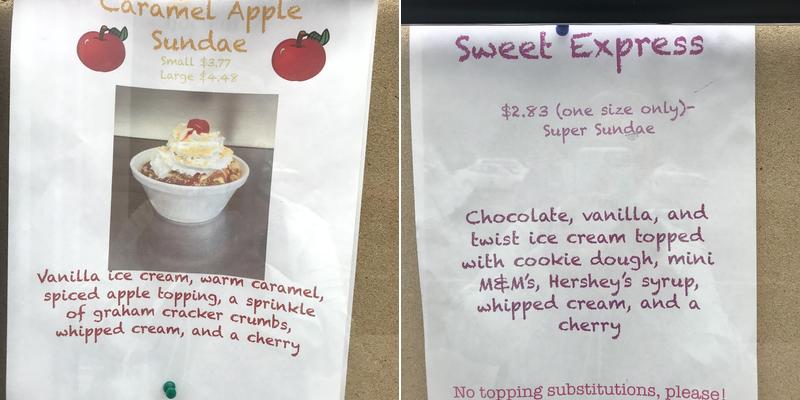 Caramel Apple
Sundae
Small $3.77
Large $4.48
Vanilla ice cream, warm caramel,
spiced apple topping, a sprinkle
of graham cracker crumbs,
whipped cream, and a cherry
Sweet Express
$2.83 (one size only)-
Super Sundae
Chocolate, vanilla, and
twist ice cream topped
with cookie dough, mini
M&M's, Hershey's syrup,
whipped cream, and a
cherry
No topping substitutions, please!